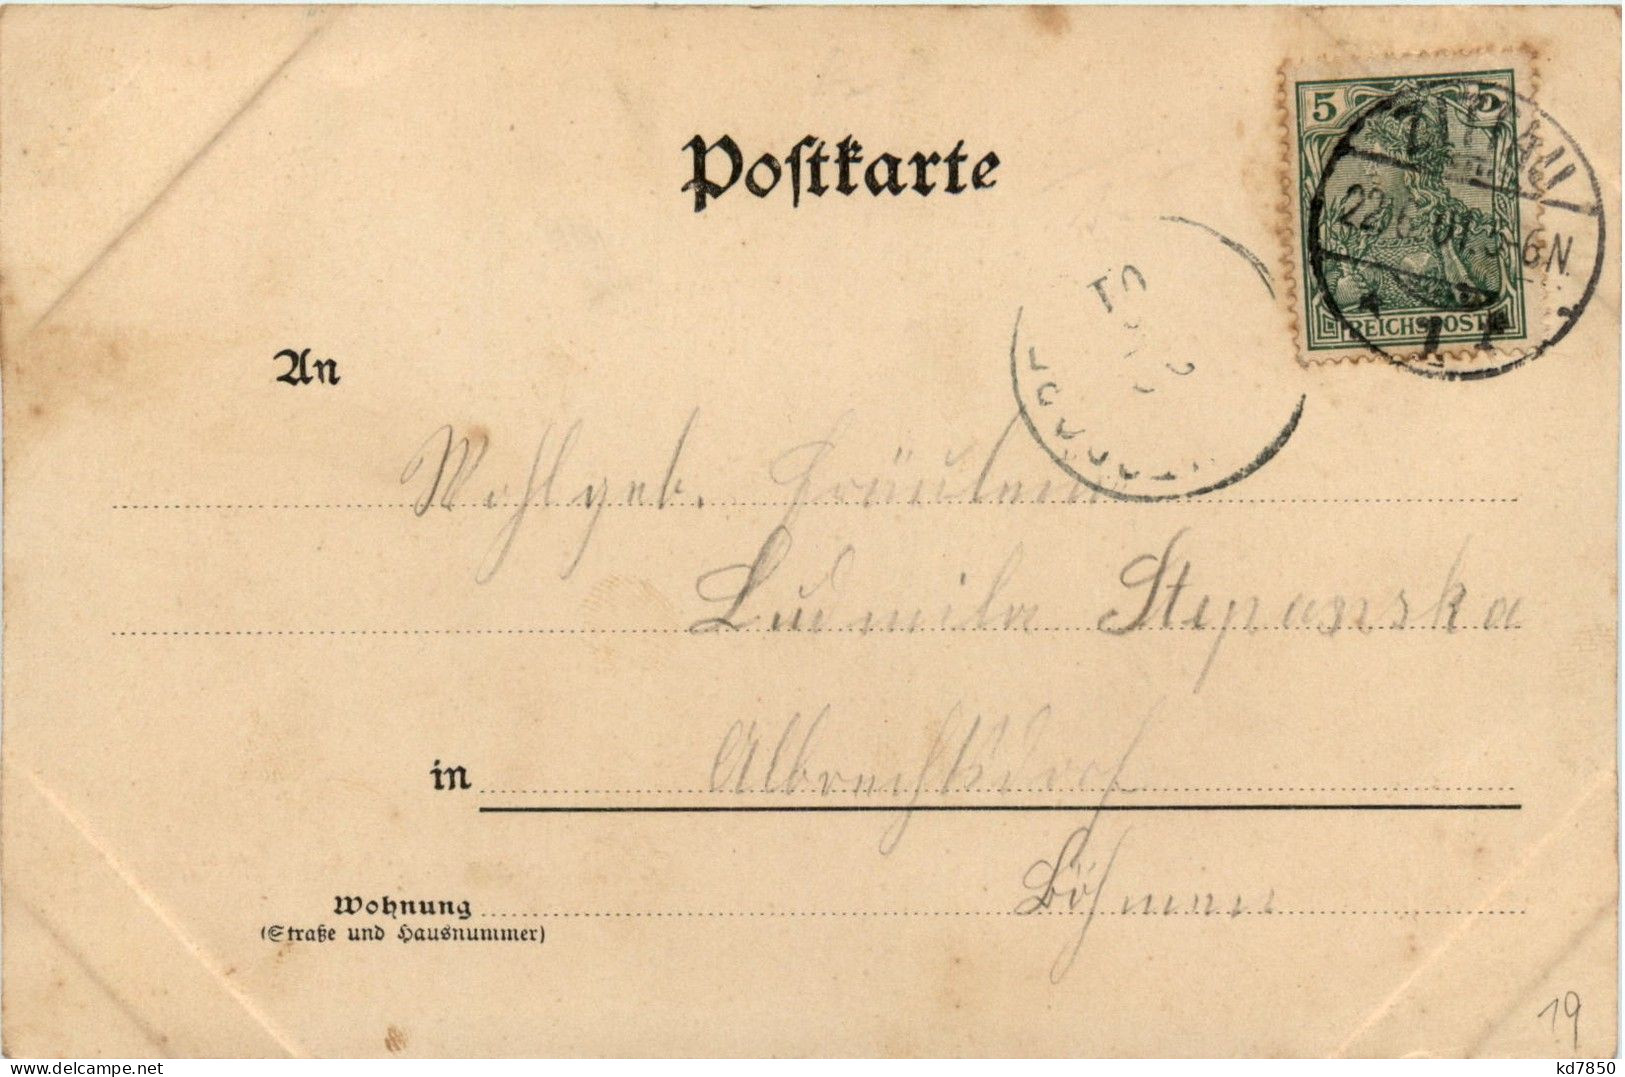 Postkarte
5 5
REICHSPOST
ZITTAU
22 01 6N.
1
An
Wohlgeb. Fräulein
Ludmila Stepanska
in Albrechtsdorf
Böhmen
Wohnung
(Straße und Hausnummer)
19
kd7850